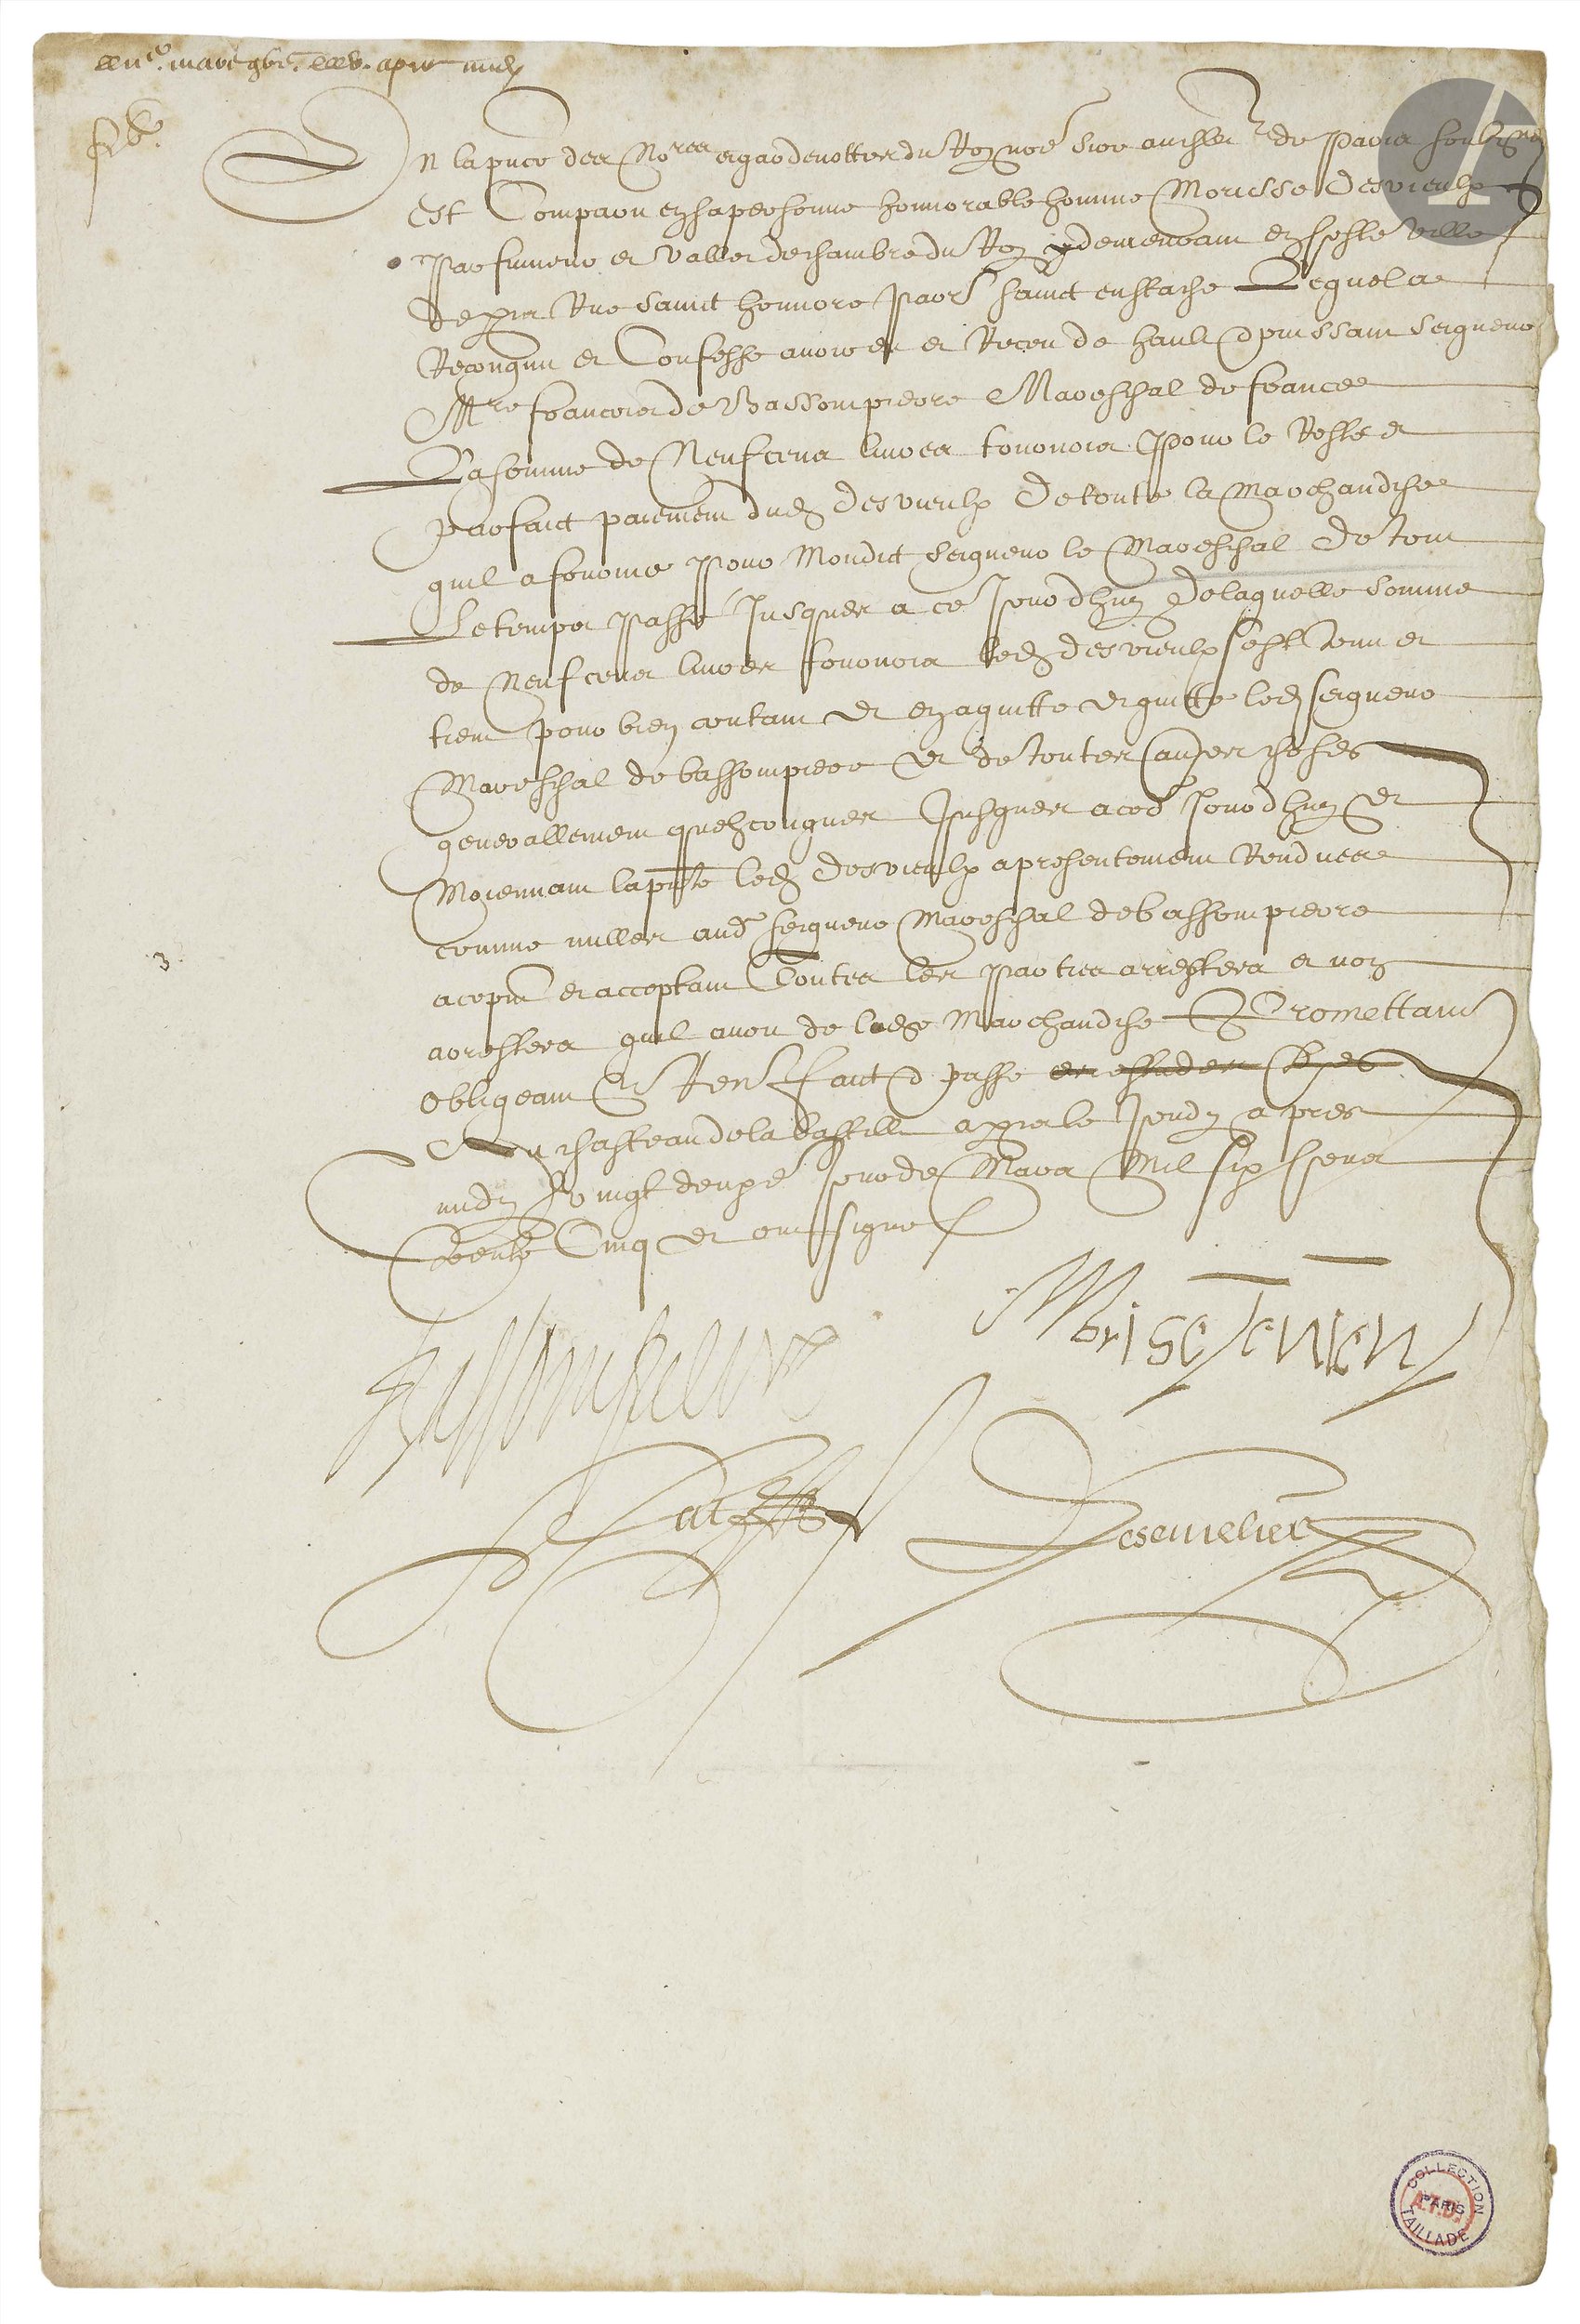 En la pnce des No.res et gardenottes du Roy nre Sire au chlet de Paris soubz.nez
est Comparu en sa personne honnorable homme Morisse Desvieulx
Parfumeur et Vallet de chambre du Roy demeurant en ceste ville
de paris Rue Sainct honnore parr. sainct eustache Lequel a
Recongnu et Confesse avoir eu et Receu de hault & puissant Seigneur
M.re francois de Bassompierre Mareschal de france
La somme de Neuf cens livres tournois Pour le Reste et
parfaict paiement dud. desvieulx De toute la Marchandise
quil a fournie Pour Mondict Seigneur le Mareschal De tout
Le temps Passé Jusques a ce Jourdhuy De laquelle Somme
de Neuf cens livres tournois led. desvieulx sest tenu et
tient pour bien contant Et en a quitte et quitte led. seigneur
Mareschal de bassompierre Et de toutes autres choses
generallement quelzconques Jusques a ced. Jourdhuy Et
Moiennant la pnte led. Desvieulx a presentement Rendues
comme nulles aud. seigneur Mareschal de bassompierre
a ce pnt et acceptant Toutes les parties arrestees et non
arrestees quil avoit de lade Marchandise Promettant
Obligeant Et Ren. faict & passé
Au chasteau de la bastille a paris le Jeudy apres
midy Vingt deuxe Jour de Mars Mil six cens
trente Cinq Et ont signe
Bassompierre
Desemeliers
3
COLLECTION TAILLADE
PARIS
A.T.D.